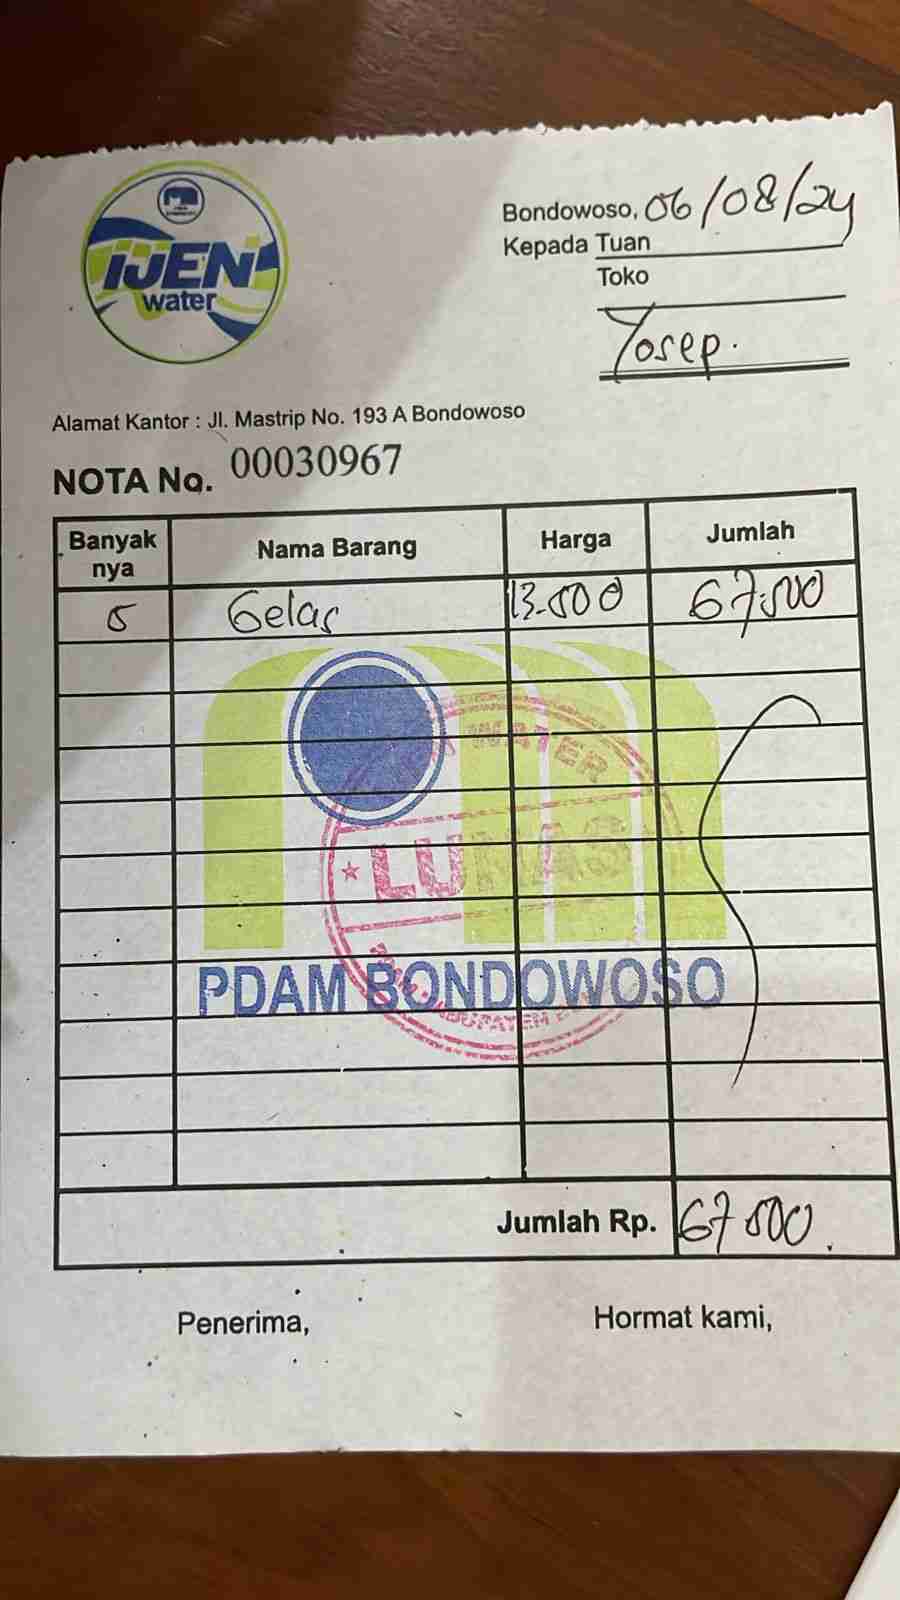 IJEN
water
Bondowoso, 06/08/24
Kepada Tuan
Toko
Yosep.
Alamat Kantor : Jl. Mastrip No. 193 A Bondowoso
NOTA No. 00030967
Banyak nya Nama Barang Harga Jumlah
5 Gelas 13.500 67.500
WATER
LUNAS
PDAM BONDOWOSO
Jumlah Rp. 67 500
Penerima, Hormat kami,